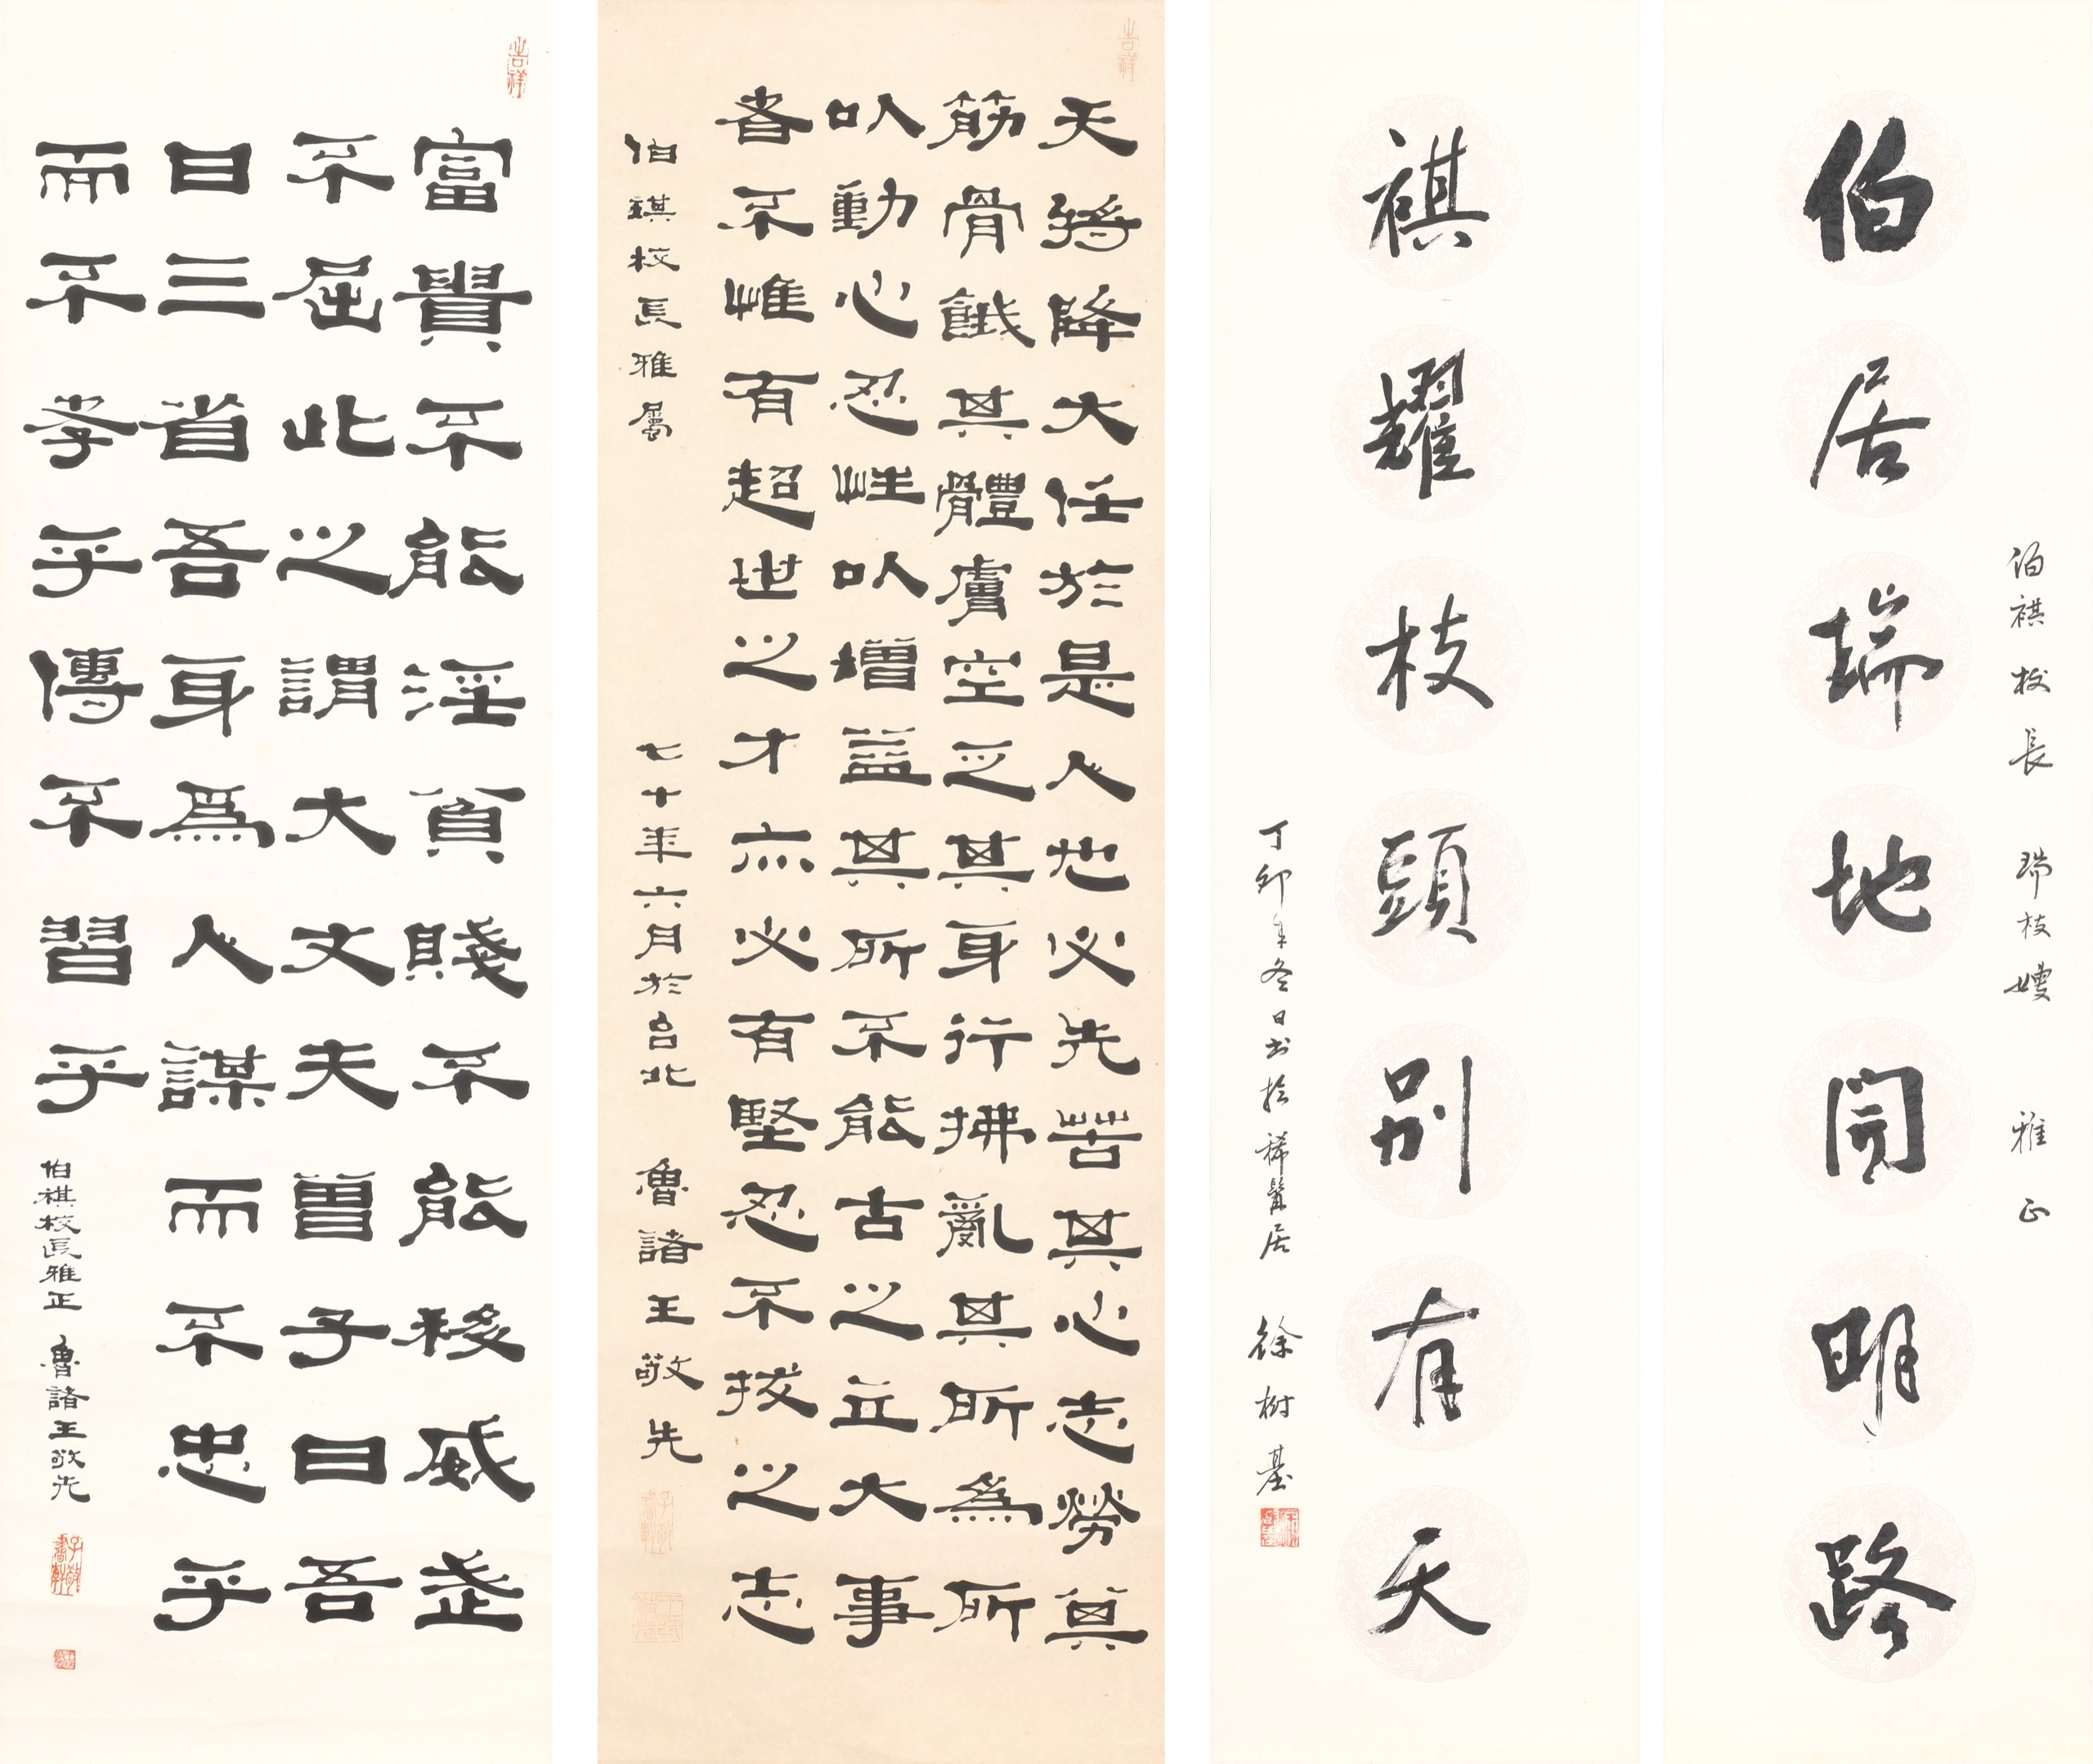 伯祺校長 瑞枝嫂 雅正
伯居瑞地開明路
祺耀枝頭別有天
丁卯年冬日書於稀髯居 徐樹基
吉祥
天將降大任於是人也必先苦其心志勞其
筋骨餓其體膚空乏其身行拂亂其所爲所
以動心忍性以增益其所不能古之立大事
者不惟有超世之才亦必有堅忍不拔之志
伯祺校長雅屬 七十年六月於台北 魯諸王敬先
吉祥
富貴不能淫貧賤不能移威武
不屈此之謂大丈夫曾子曰吾
日三省吾身爲人謀而不忠乎
而不孝乎傳不習乎
伯祺校長雅正 魯諸王敬先